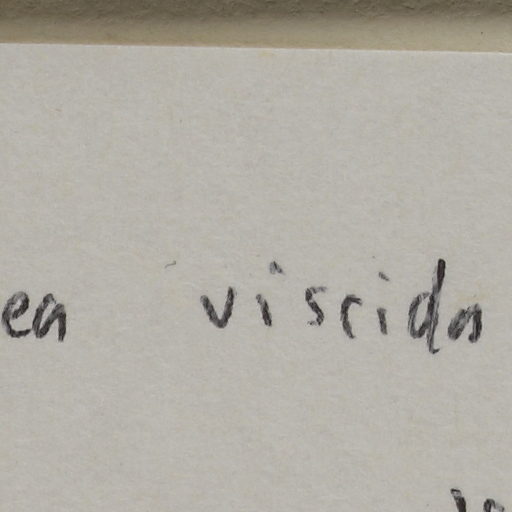 ea viscida